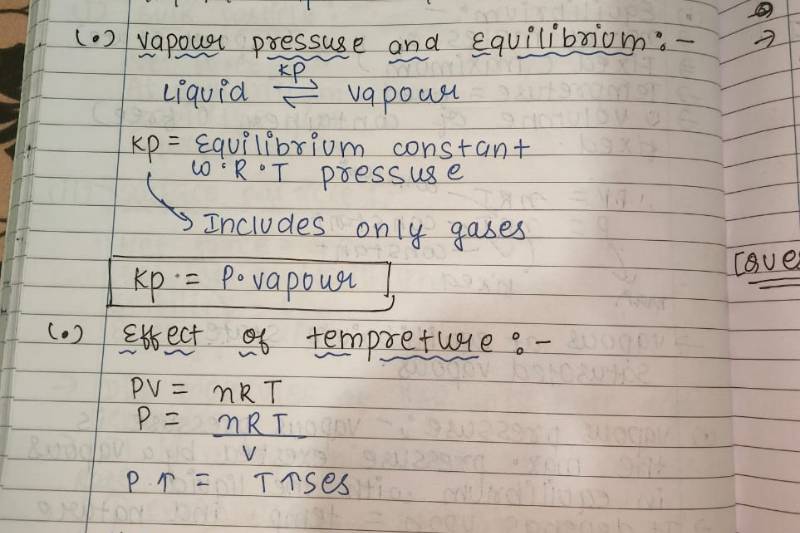 (•) vapour pressuse and Equilibrium :-
Kp
Liquid ⇌ vapour
Kp = Equilibrium constant
W•R•T pressuse
↳ Includes only gases
Kp = P•vapour
(•) Effect of tempreture :-
PV = nRT
P = nRT
V
P ↑ = T↑ses
[Ques